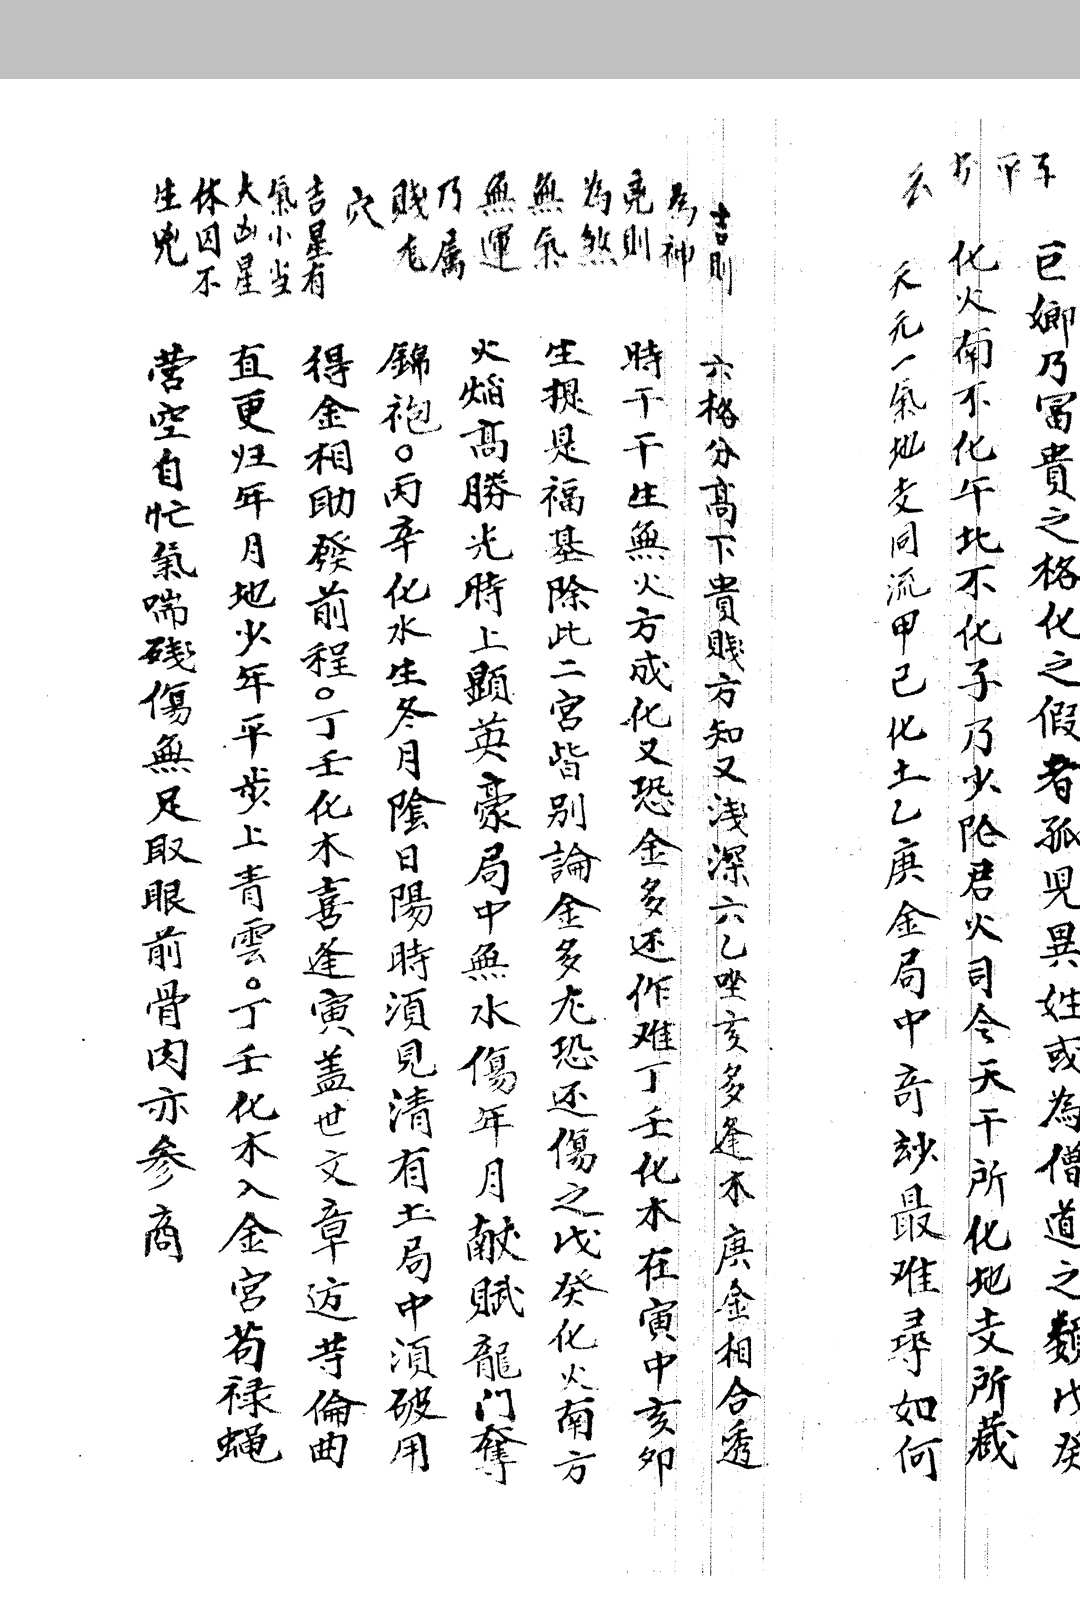 子
平
云
巨卿乃冨貴之格化之假者孤児異姓或為僧道之類戊癸
化火南不化午北不化子乃少陰君火司令天干所化地支所藏
天元一氣地支同流甲己化土乙庚金局中奇玅最难尋如何
吉則
為神
克則
為煞
無氣
無運
乃属
賤尨
穴
吉星有
氣小当
大凶星
休囚不
生兇
六格分高下貴賤方知又淺深六乙唑亥多逢木庚金相合透
時干干生無火方成化又恐金多还作难丁壬化木在寅中亥夘
生提是福基除此二宮皆别論金多尨恐还傷之戊癸化火南方
火焰高勝光時上顕英豪局中無水傷年月献賦龍门奪
錦袍。丙辛化水生冬月陰日陽時湏見清有土局中湏破用
得金相助發前程。丁壬化木喜逢寅盖世文章迈等倫曲
直更归年月地少年平步上青雲。丁壬化木入金宮苟禄蝇
营空自忙氣喘殘傷無足取眼前骨肉亦参商